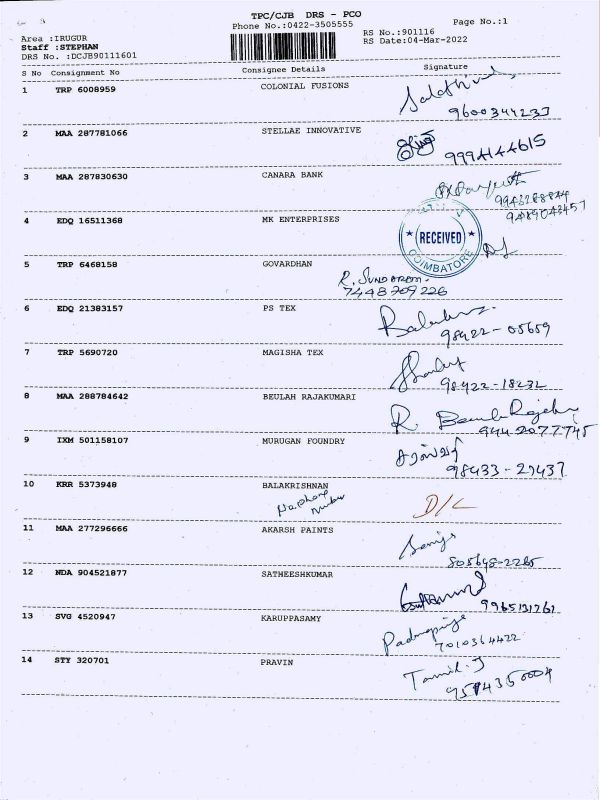 TPC/CJB DRS - PCO
Phone No.:0422-3505555
Page No.:1
Area :IRUGUR
Staff :STEPHAN
DRS No. :DCJB90111601
RS No.:901116
RS Date:04-Mar-2022
S No Consignment No Consignee Details Signature
1 TRP 6008959 COLONIAL FUSIONS
9600344233
2 MAA 287781066 STELLAE INNOVATIVE
9994144615
3 MAA 287830630 CANARA BANK
4 EDQ 16511368 MK ENTERPRISES
RECEIVED
COIMBATORE
5 TRP 6468158 GOVARDHAN
R. SUNDARAM.
7448709226
6 EDQ 21383157 PS TEX
98422-05659
7 TRP 5690720 MAGISHA TEX
98422-18232
8 MAA 288784642 BEULAH RAJAKUMARI
R.
9442077745
9 IXM 501158107 MURUGAN FOUNDRY
98433-29437
10 KRR 5373948 BALAKRISHNAN
No phone number
D/L
11 MAA 277296666 AKARSH PAINTS
12 NDA 904521877 SATHEESHKUMAR
13 SVG 4520947 KARUPPASAMY
Padmapriya
7010364422
14 STY 320701 PRAVIN
Tamil.J